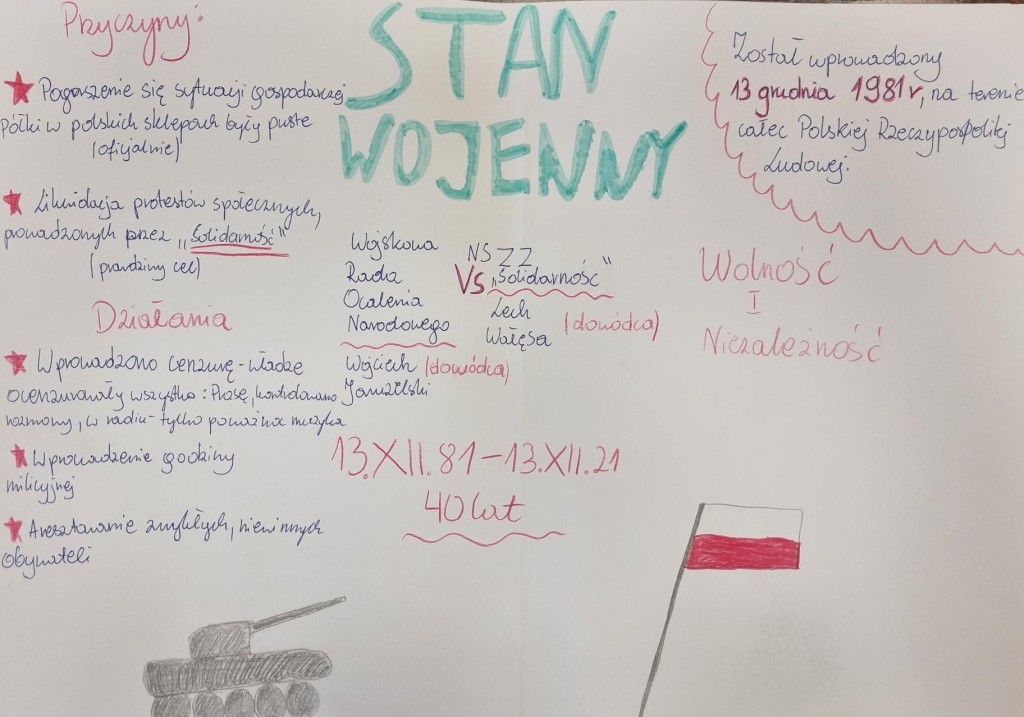 Przyczyny:
Pogorszenie się sytuacji gospodarczej
Półki w polskich sklepach były puste
(oficjalnie)
Likwidacja protestów społecznych,
prowadzonych przez „Solidarność”
(prawdziwy cel)
Działania
Wprowadzono cenzurę - władze
ocenzurowały wszystko: Prasę, kontrolowano
rozmowy, w radiu - tylko poważna muzyka
Wprowadzenie godziny
milicyjnej
Aresztowanie zwykłych, niewinnych
obywateli
STAN
WOJENNY
Wojskowa
Rada
Ocalenia
Narodowego
Wojciech (dowódca)
Jaruzelski
VS
NSZZ
„Solidarność”
Lech
Wałęsa
(dowódca)
13.XII.81-13.XII.21
40 lat
Został wprowadzony
13 grudnia 1981r, na terenie
całec Polskiej Rzeczypospolitej
Ludowej.
Wolność
I
Niezależność